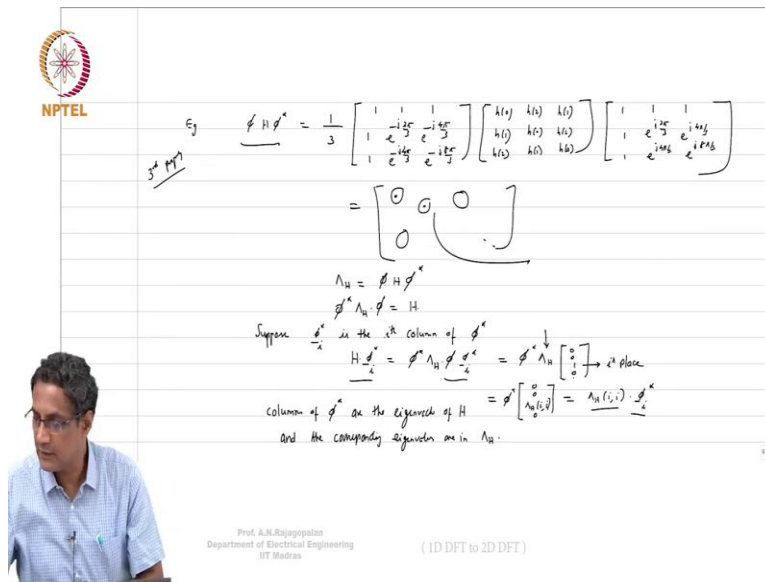 NPTEL
Eg ϕ H ϕ* = 1/3 [1 1 1; 1 e^{-i2π/3} e^{-i4π/3}; 1 e^{-i4π/3} e^{-i8π/3}] [h(0) h(2) h(1); h(1) h(0) h(2); h(2) h(1) h(0)] [1 1 1; 1 e^{i2π/3} e^{i4π/3}; 1 e^{i4π/3} e^{i8π/3}]
3rd
= [⊙ O; ⊙; O ⋱]
Λ_H = ϕ H ϕ*
ϕ* Λ_H · ϕ = H
Suppose ϕ*_i is the ith column of ϕ*
H · ϕ*_i = ϕ* Λ_H · ϕ ϕ*_i = ϕ* Λ_H [0; 0; 1; 0] → ith place
= ϕ* [0; 0; Λ_H(i,i); 0] = Λ_H(i,i) · ϕ*_i
columns of ϕ* are the eigenvects of H
and the corresponding eigenvalues are in Λ_H.
Prof. A.N.Rajagopalan
Department of Electrical Engineering
IIT Madras
( 1D DFT to 2D DFT )